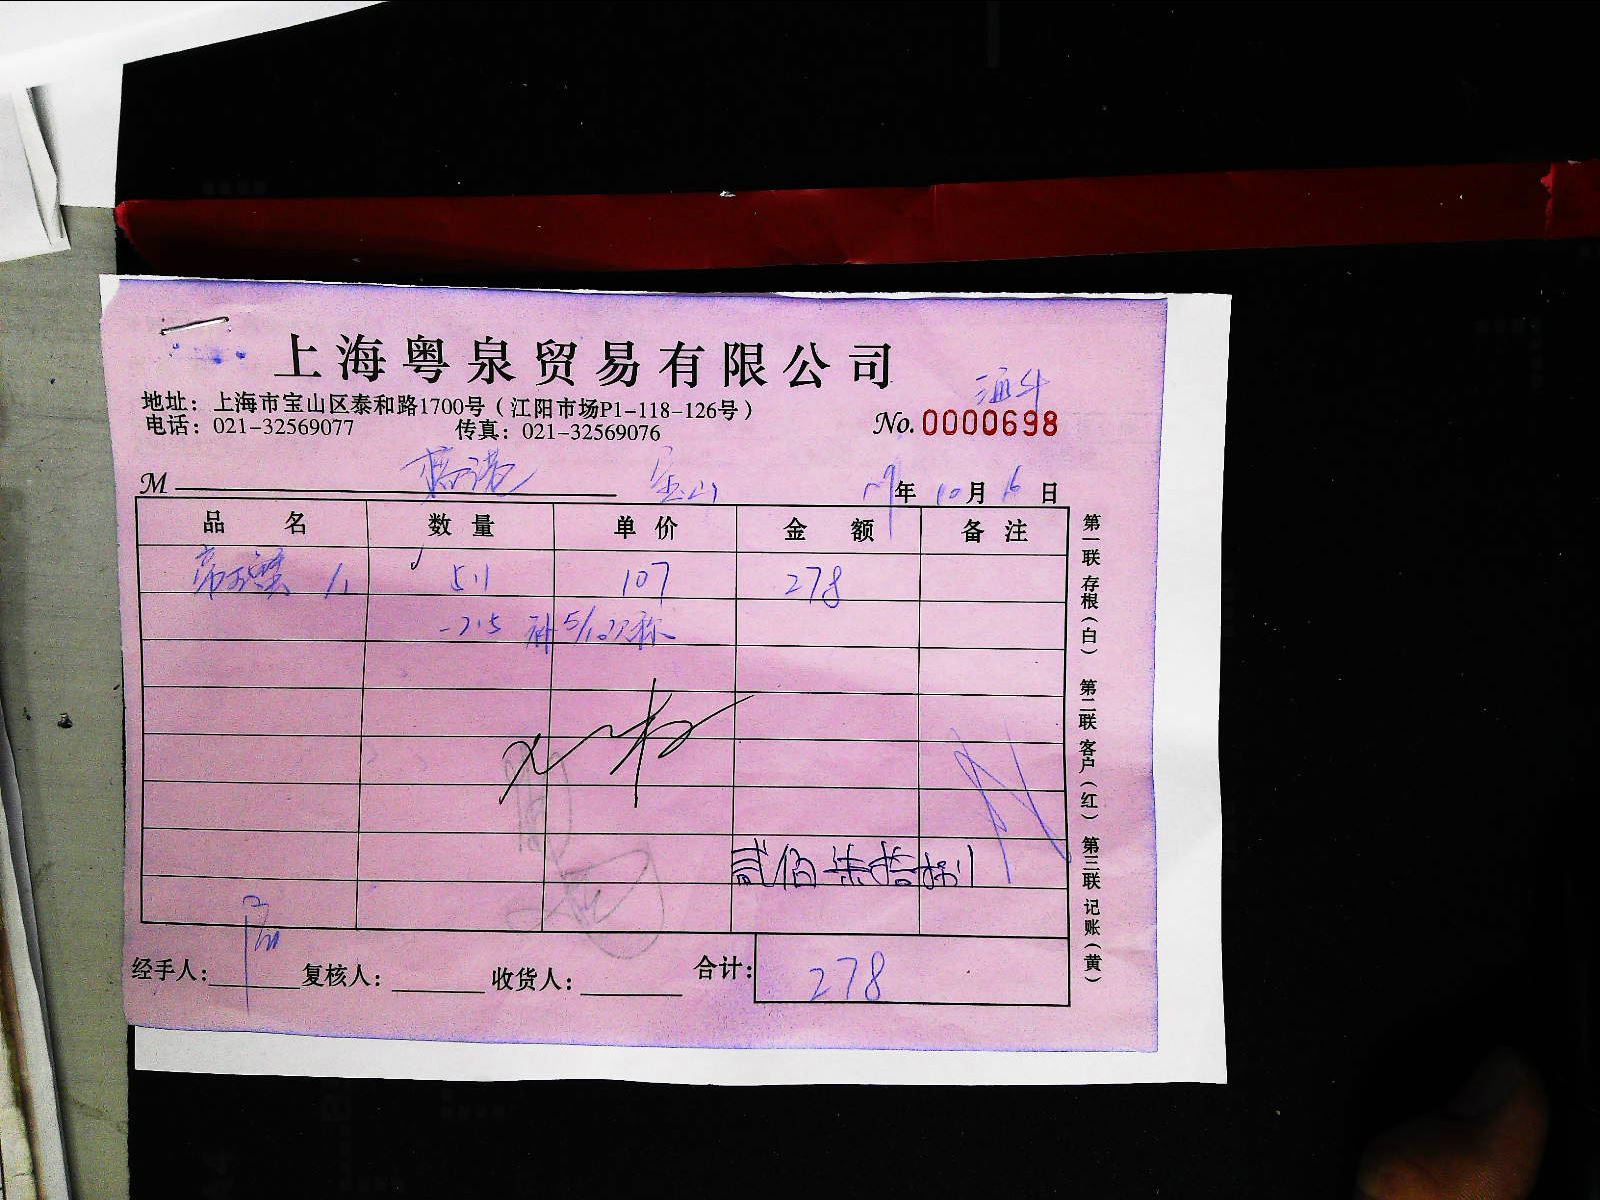 上海粤泉贸易有限公司
地址：上海市宝山区泰和路1700号（江阳市场P1-118-126号）
电话：021-32569077 传真：021-32569076
No. 0000698
M 宝山 17年 10月 16日
品 名 数 量 单 价 金 额 备 注
107 278
贰佰柒拾捌
经手人： 复核人： 收货人： 合计： 278
第一联 存根（白） 第二联 客户（红） 第三联 记账（黄）